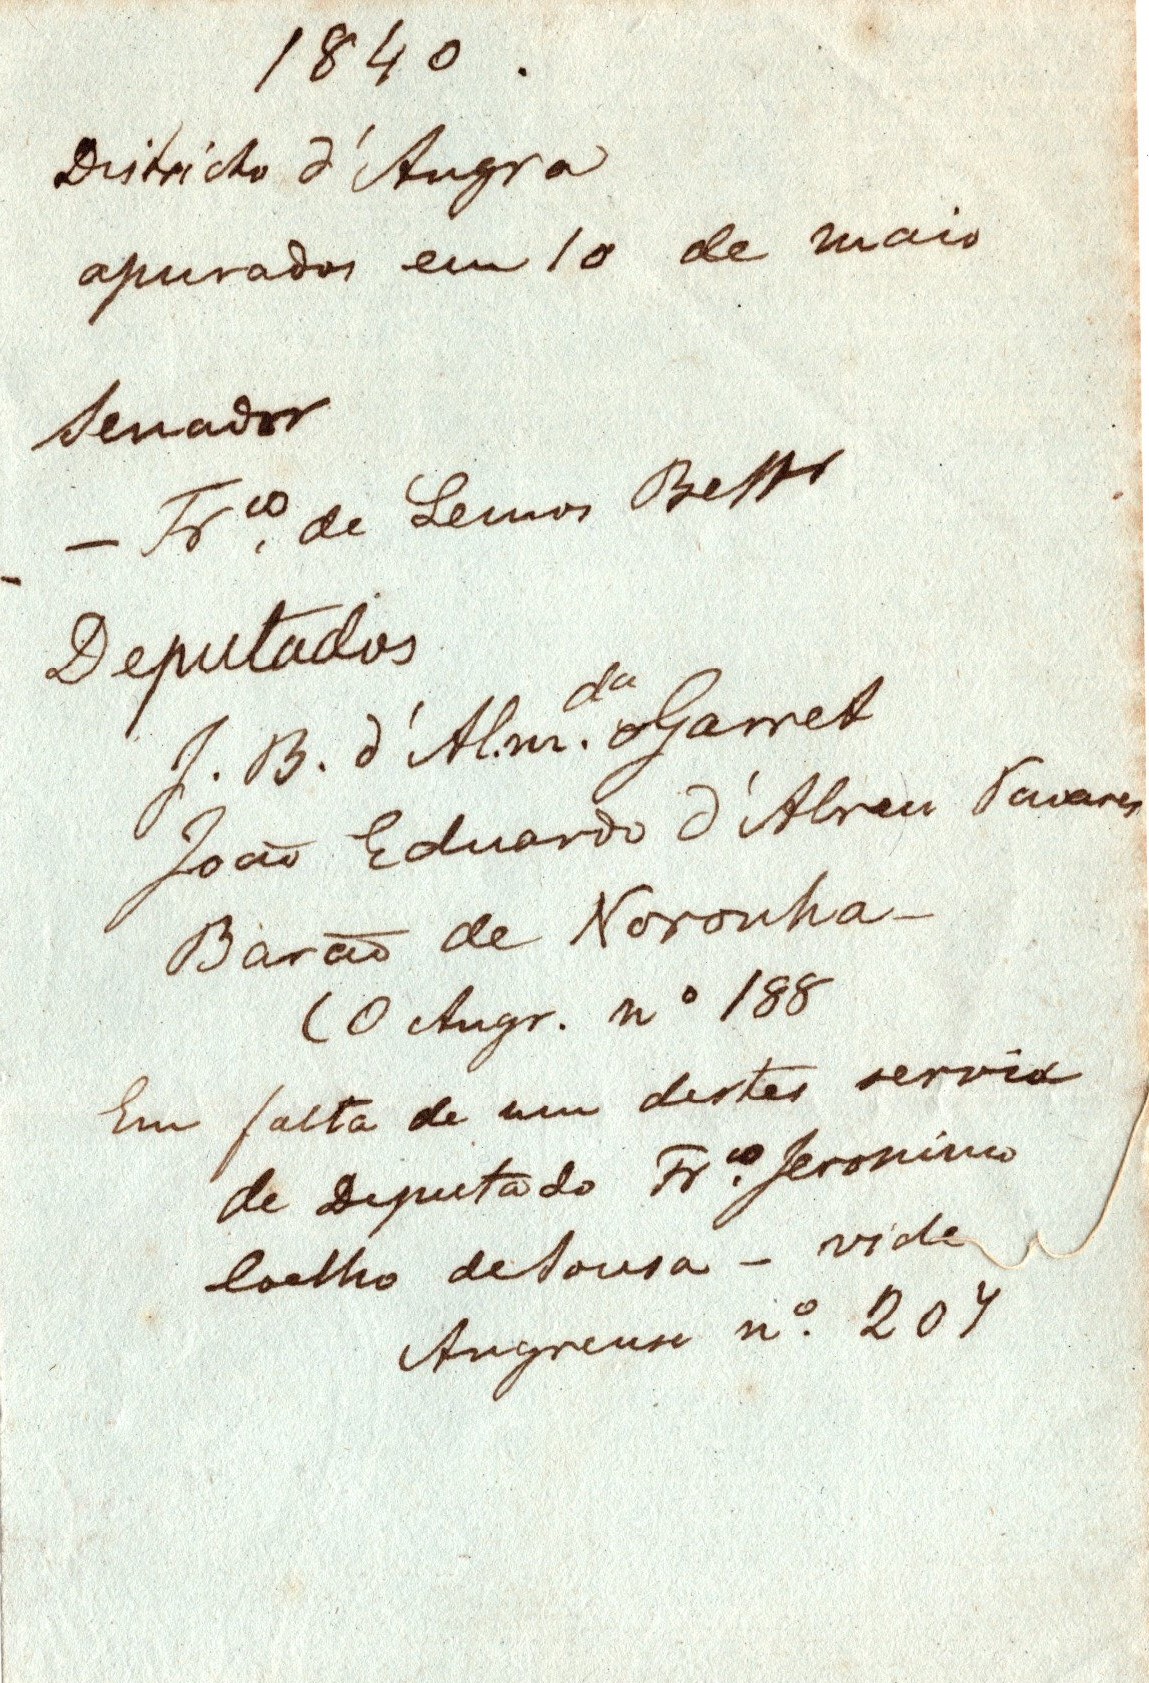 1840.
Districto d'Angra
apurados em 10 de maio
Senador
- Frco. de Lemos Bettr
Deputados
J. B. d'Alm.da Garret
João Eduardo d'Abreu Tavares
Barão de Noronha -
(O Angr. nº 188
Em falta de um destes servia
de Deputado Frco. Jeronimo
Coelho de Sousa - vide
Angrense nº. 207